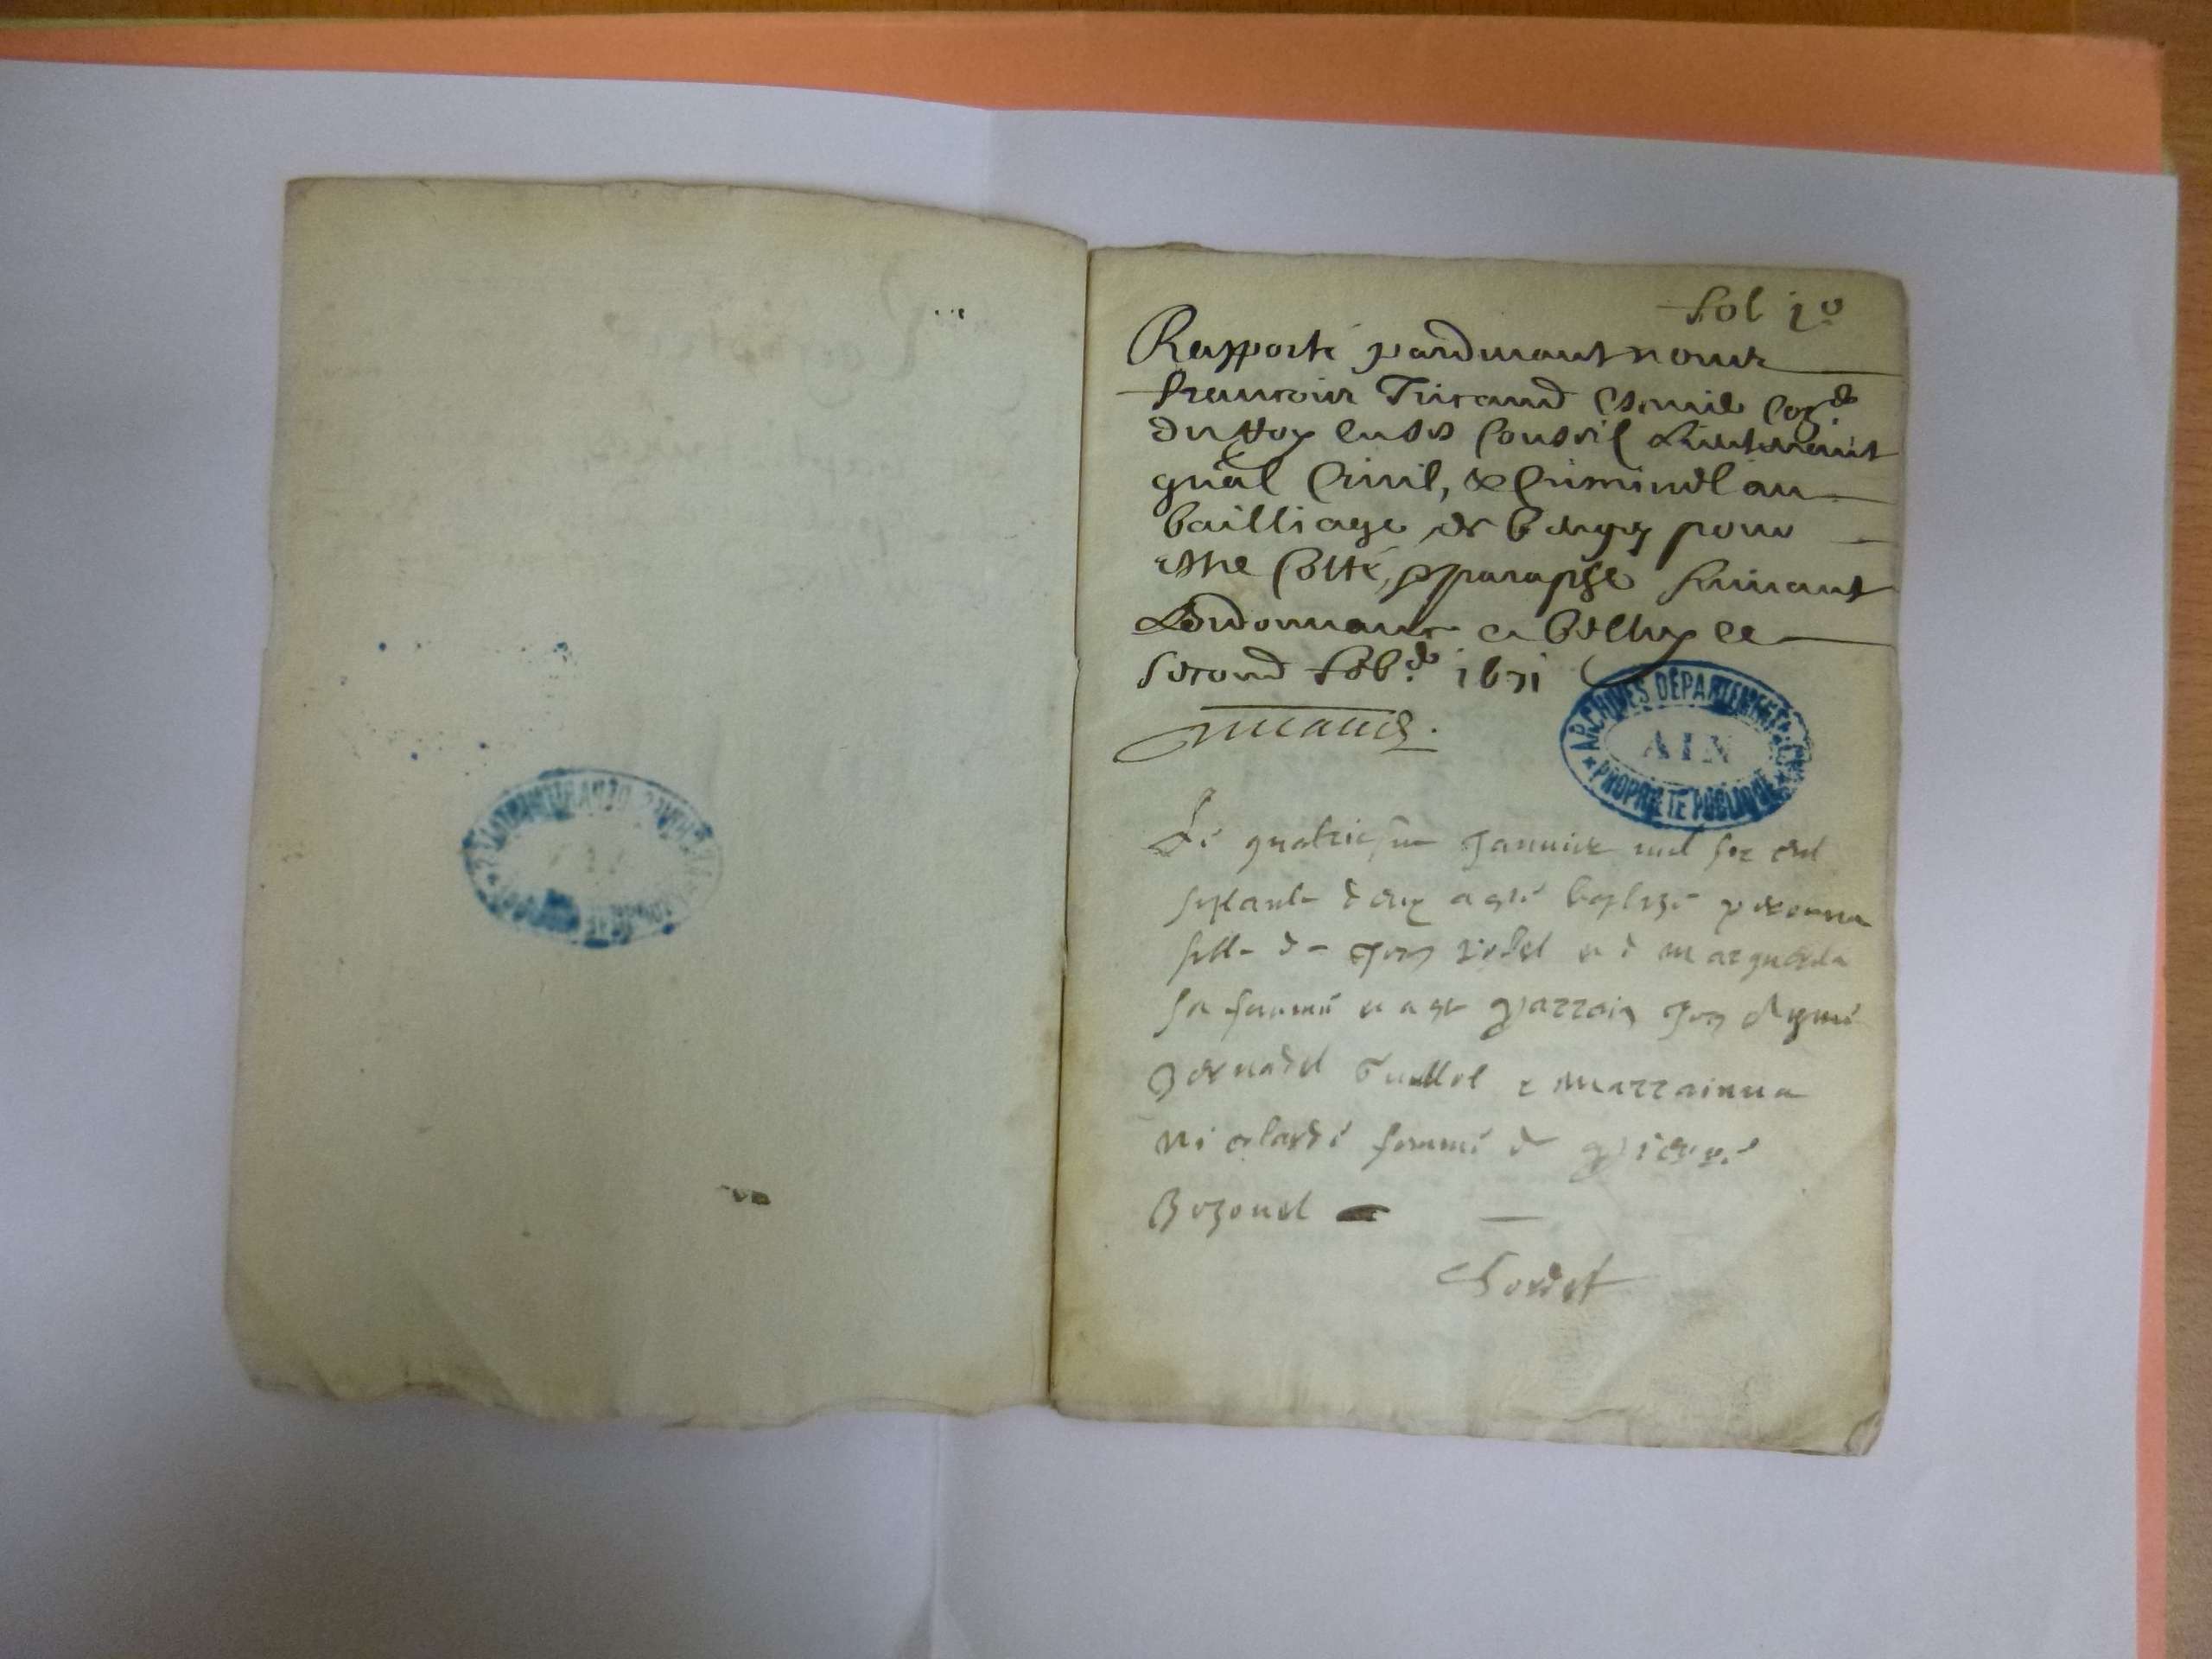 fol 1o
Rapporté pardevant nous
francois Tricaud Escuie Con.er
du Roy en ses Conseil Lieutenant
gnal Civil, & Criminel au
bailliage de bugey pour
estre Cotté, & paraphe suivant
Lordonnance a belley ce
second feb.er 1671
Tricaud.
ARCHIVES DEPARTEMENTALES
AIN
PROPRIETE PUBLIQUE
Le quatriesme Janvier mil six cent
septante deux a esté baptisé pierrona
fille de Jean et de marguerita
sa femme et a este parrain Jean
et marrainna
femme de pierre
Bozonet
Sordet